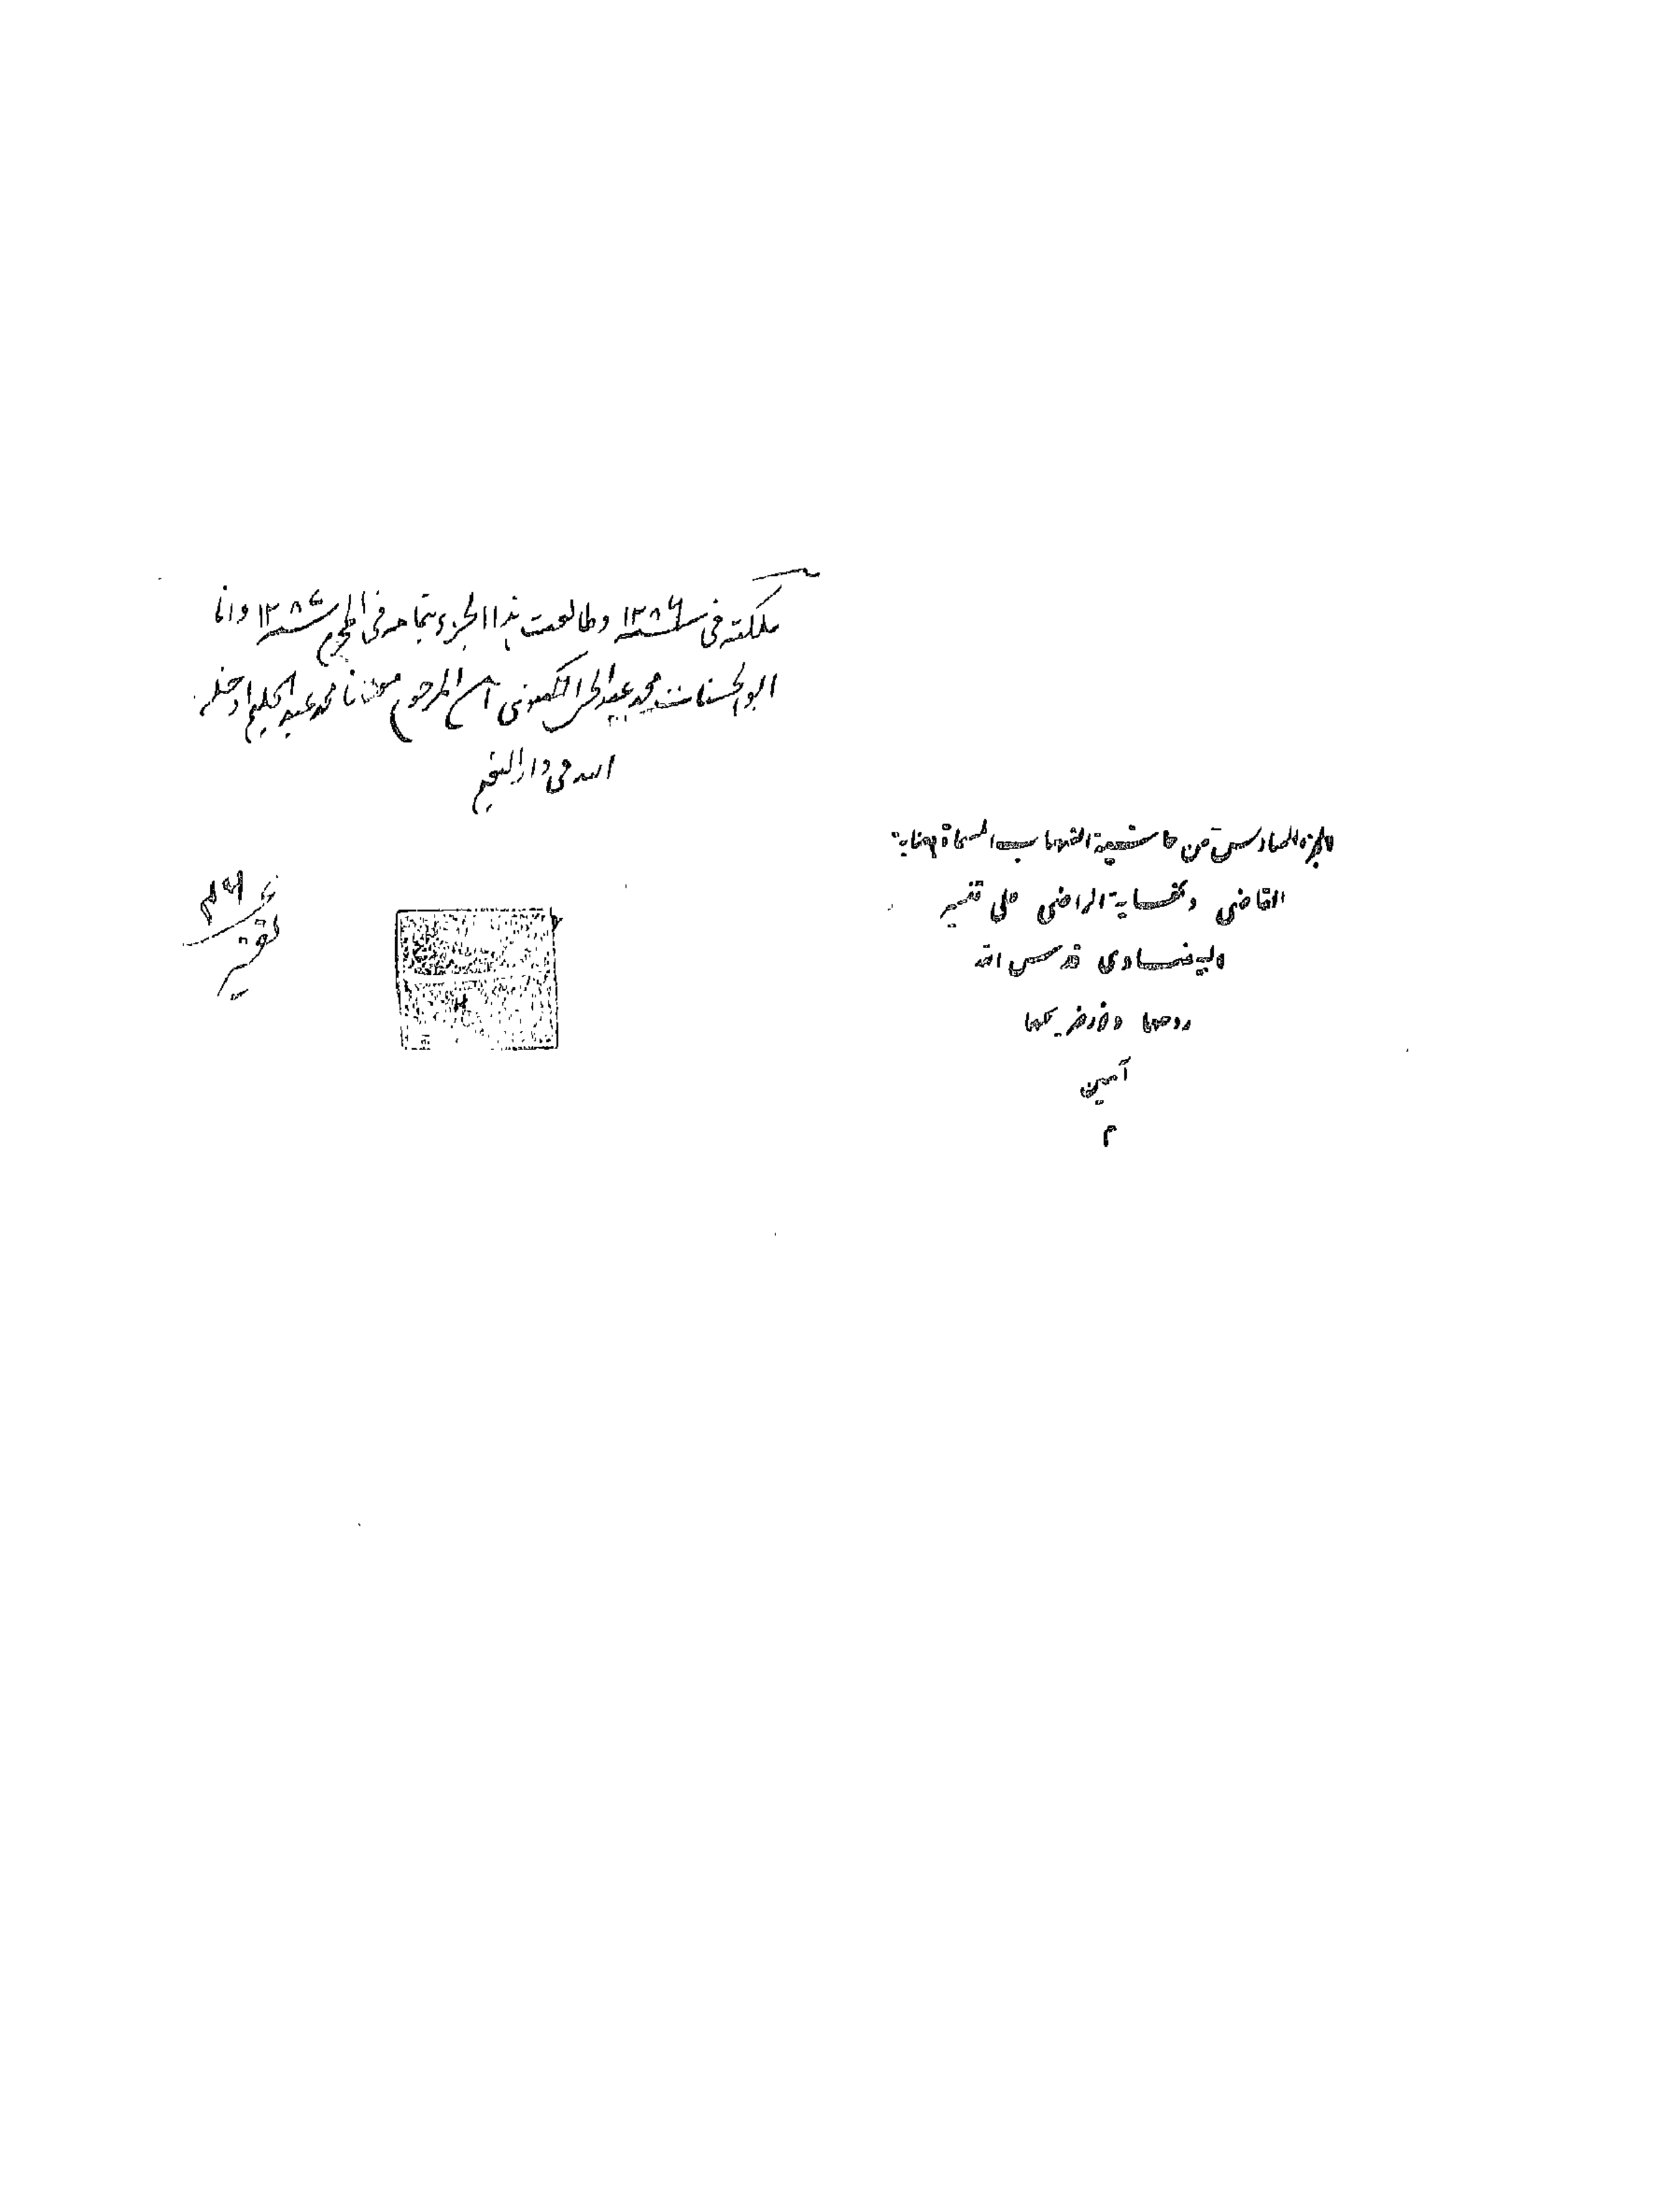 ملكته فى سنة ١٢٨٦ وطالعت هذا الجزء بتمامه فى المحرم سنة ١٢٨٧ وانا
ابو الحسنات محمد عبد الحى اللكهنوى ابن المرحوم مولانا محمد عبد الحليم ادخله
الله فى دار النعيم
الجزء السادس من حاشية الشهاب المسماة بعناية
القاضى وكفاية الراضى على تفسير
البيضاوى قدس الله
روحهما ونور ضريحهما
آمين
م
تفسير